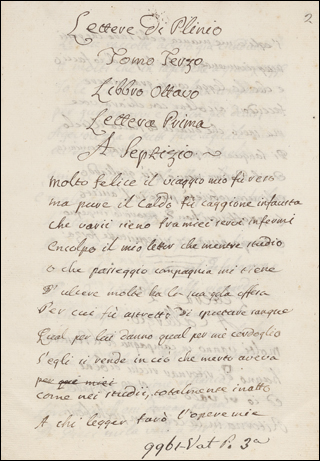 2
Lettere Di Plinio
Tomo Terzo
Libbro Ottavo
Lettera Prima
A Septizio
Molto felice il viaggio mio fù vero
ma pure il Caldo fù caggione infausta
che varii sieno tra miei servi infermi
Encolpo il mio lettor che mentre studio
o che passeggio compagnia mi tiene
D' ulcere molte ha la sua gola offesa
Per cui fù astretto di sputare sangue
Qual per lui danno qual per me cordoglio
S'egli si rende in ciò che merto aveva
per que miei
come nei studii, totalmente inatto
A chi legger farò l'opere mie
9961-Vat. P. 3a